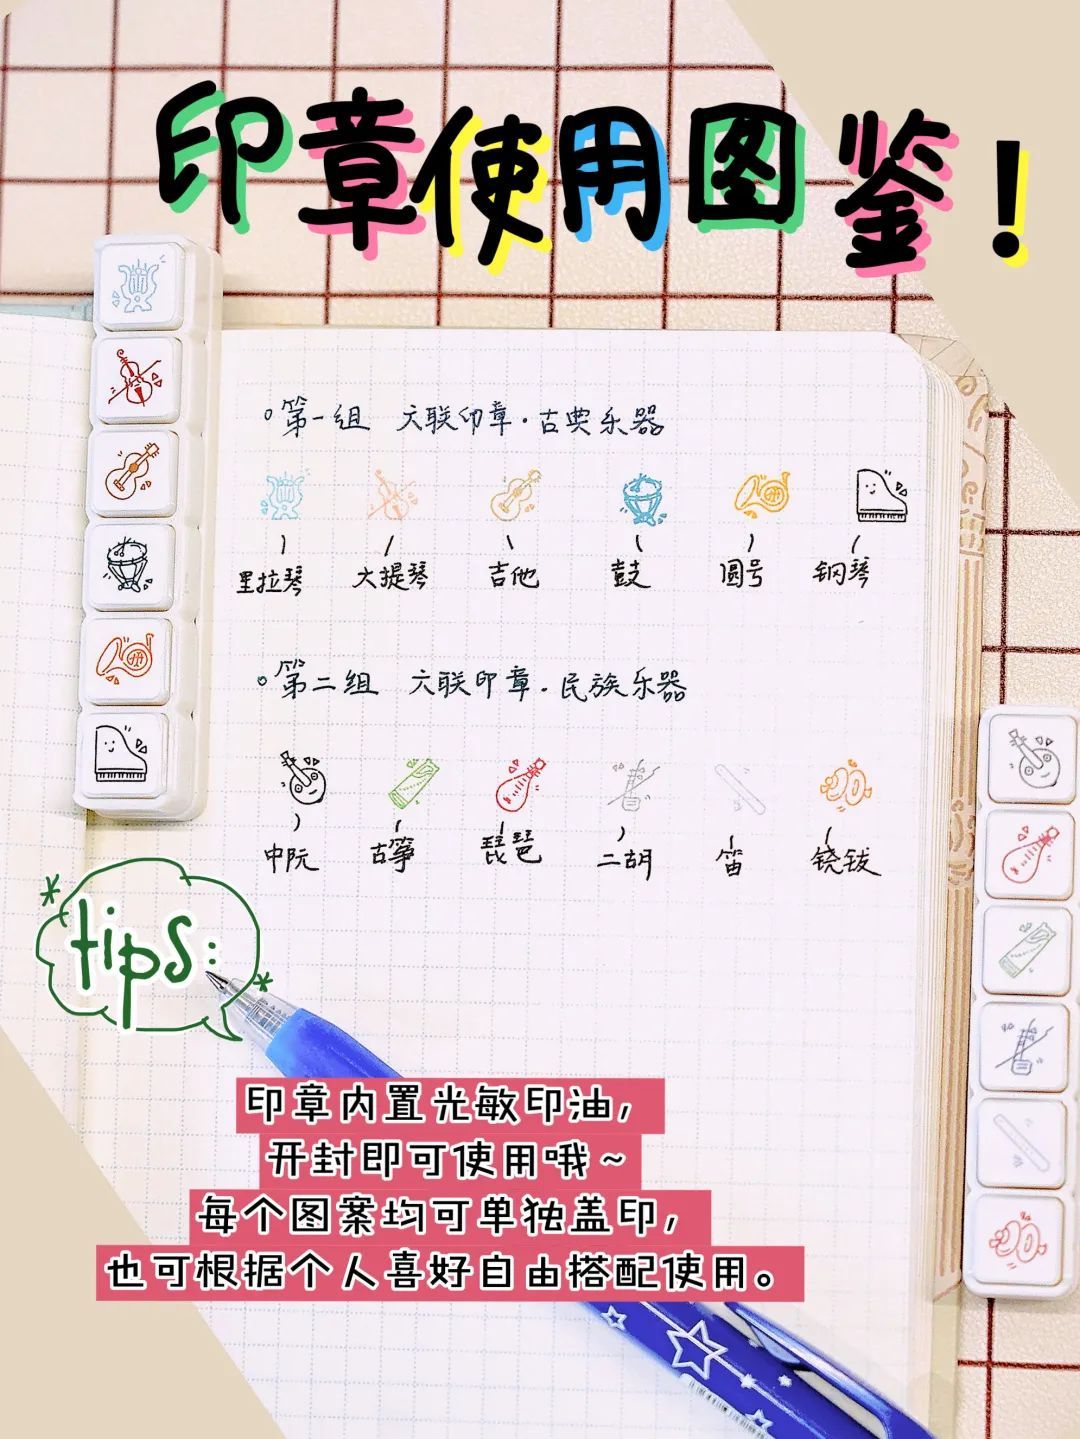 印章使用图鉴！
第一组 六联印章·古典乐器
里拉琴 大提琴 吉他 鼓 圆号 钢琴
第二组 六联印章·民族乐器
中阮 古筝 琵琶 二胡 笛 铙钹
tips:
印章内置光敏印油，
开封即可使用哦～
每个图案均可单独盖印，
也可根据个人喜好自由搭配使用。